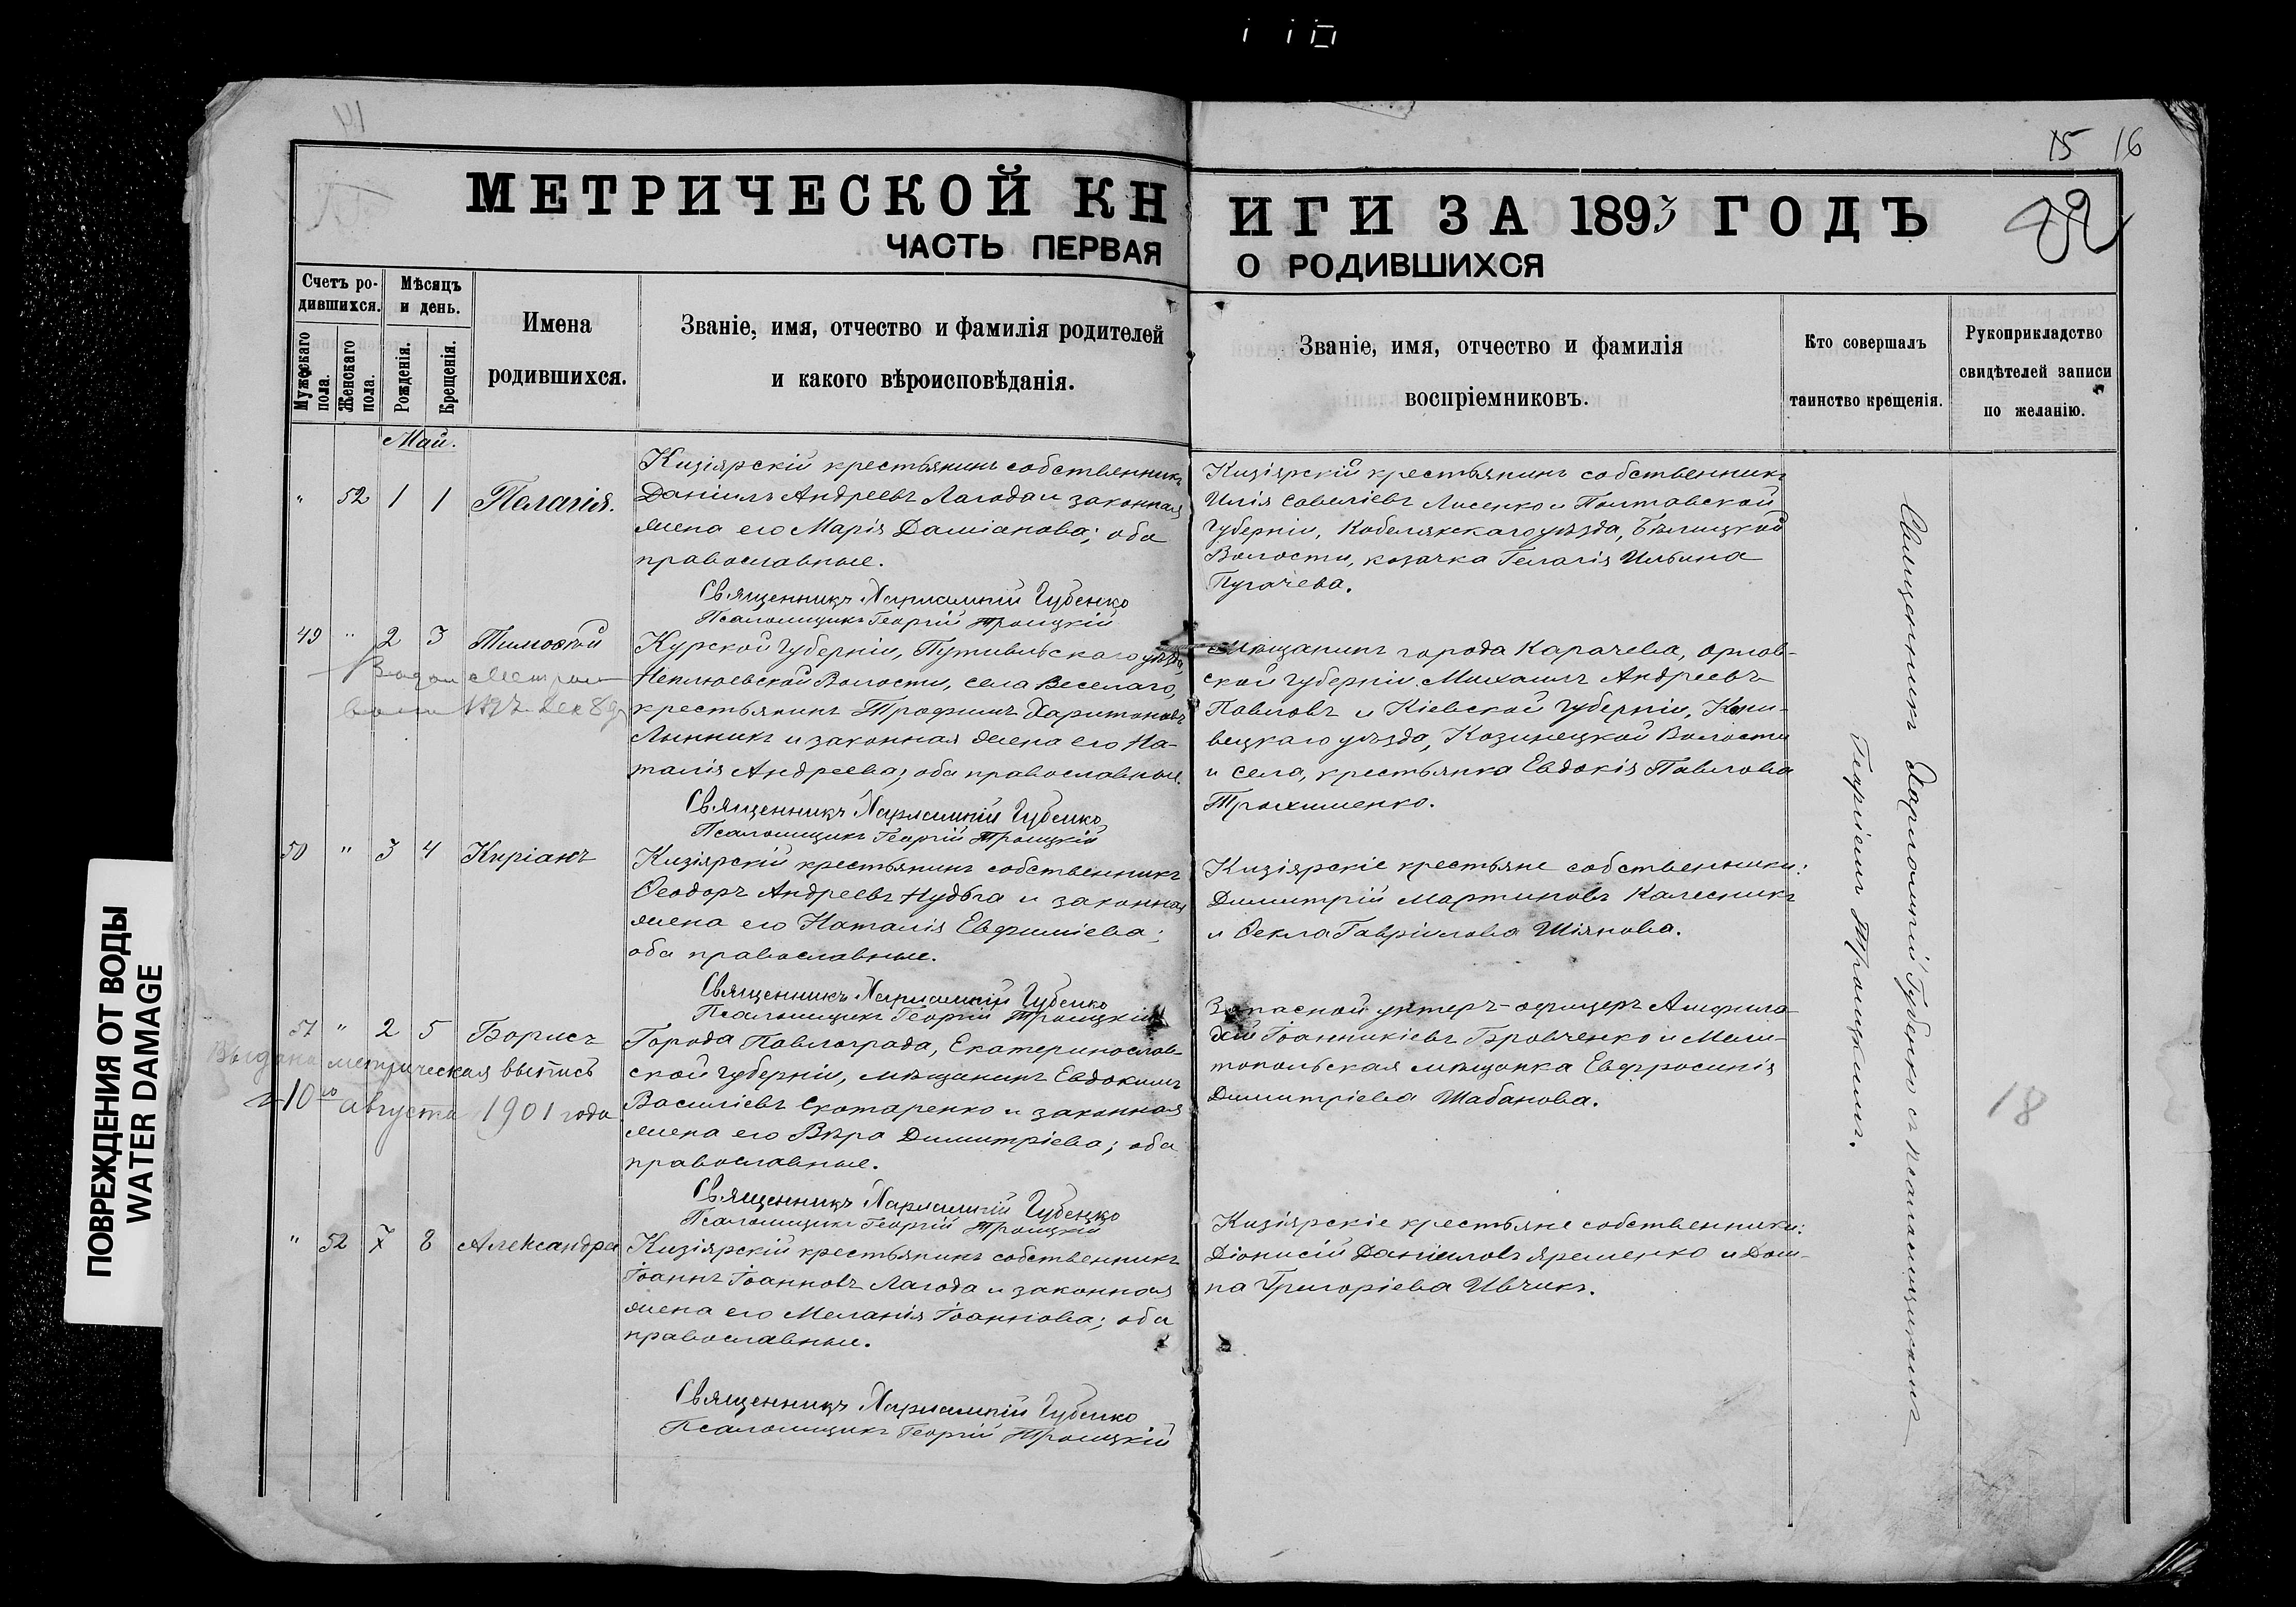 15 16
МЕТРИЧЕСКОЙ КНИГИ ЗА 1893 ГОДЪ
ЧАСТЬ ПЕРВАЯ О РОДИВШИХСЯ
Счетъ ро-
дившихся.
Мужескаго пола.
Женскаго пола.
Мѣсяцъ
и день.
Рожденія.
Крещенія.
Имена
родившихся.
Званіе, имя, отчество и фамилія родителей
и какого вѣроисповѣданія.
Званіе, имя, отчество и фамилія
воспріемниковъ.
Кто совершалъ
таинство крещенія.
Рукоприкладство
свидѣтелей записи
по желанію.
Май.
" 52 1 1 Пелагія.
Кизіярскій крестьянинъ собственникъ
Даніилъ Андреевъ Лагода и законная
жена его Марія Даміанова; оба
православные.
Священникъ Харлампій Губенко
Псаломщикъ Георгій Троицкій
Кизіярскій крестьянинъ собственникъ
Илія Савеліевъ Лисенко и Полтавской
Губерніи, Кобелякскаго уѣзда, Бѣлицкой
Волости, козачка Пелагія Ильина
Пугачева.
49 " 2 3 Тимоѳей
Курской Губерніи, Путивльскаго уѣзда,
Неплюевской Волости, села Веселаго,
крестьянинъ Трофимъ Харитоновъ
Линникъ и законная жена его На-
талія Андреева; оба православные.
Священникъ Харлампій Губенко
Псаломщикъ Георгій Троицкій
Мѣщанинъ города Карачева, Орлов-
ской Губерніи Михаилъ Андреевъ
Павловъ и Кіевской Губерніи,
уѣзда, Козинецкой Волости
и села, крестьянка Евдокія Павлова
50 " 3 4 Кипріанъ
Кизіярскій крестьянинъ собственникъ
Ѳеодоръ Андреевъ Нудьга и законная
жена его Наталія Евфиміева;
оба православные.
Священникъ Харлампій Губенко
Псаломщикъ Георгій Троицкій
Кизіярскіе крестьяне собственники:
Димитрій Мартиновъ Калесникъ
и Ѳекла Гавріилова Шіянова.
51 " 2 5 Борисъ
Выдана метрическая выпись
10го августа 1901 года
Города Павлограда, Екатеринослав-
ской губерніи, мѣщанинъ Евдокимъ
Василіевъ Скотаренко и законная
жена его Вѣра Димитріева; оба
православные.
Священникъ Харлампій Губенко
Псаломщикъ Георгій Троицкій
Запасной унтеръ-офицеръ Амфило-
хій Іоанникіевъ Бровченко и Мели-
топольская мѣщанка Евфросинія
Димитріева Шабанова.
" 52 7 8 Александра
Кизіярскій крестьянинъ собственникъ
Іоаннъ Іоанновъ Лагода и законная
жена его Меланія Іоаннова; оба
православные.
Священникъ Харлампій Губенко
Псаломщикъ Георгій Троицкій
Кизіярскіе крестьяне собственники:
Діонисій Даніиловъ Яременко и Дом-
на Григоріева Ивчикъ.
Священникъ Харлампій Губенко съ псаломщикомъ
Георгіемъ Троицкимъ.
18
ПОВРЕЖДЕНИЯ ОТ ВОДЫ
WATER DAMAGE